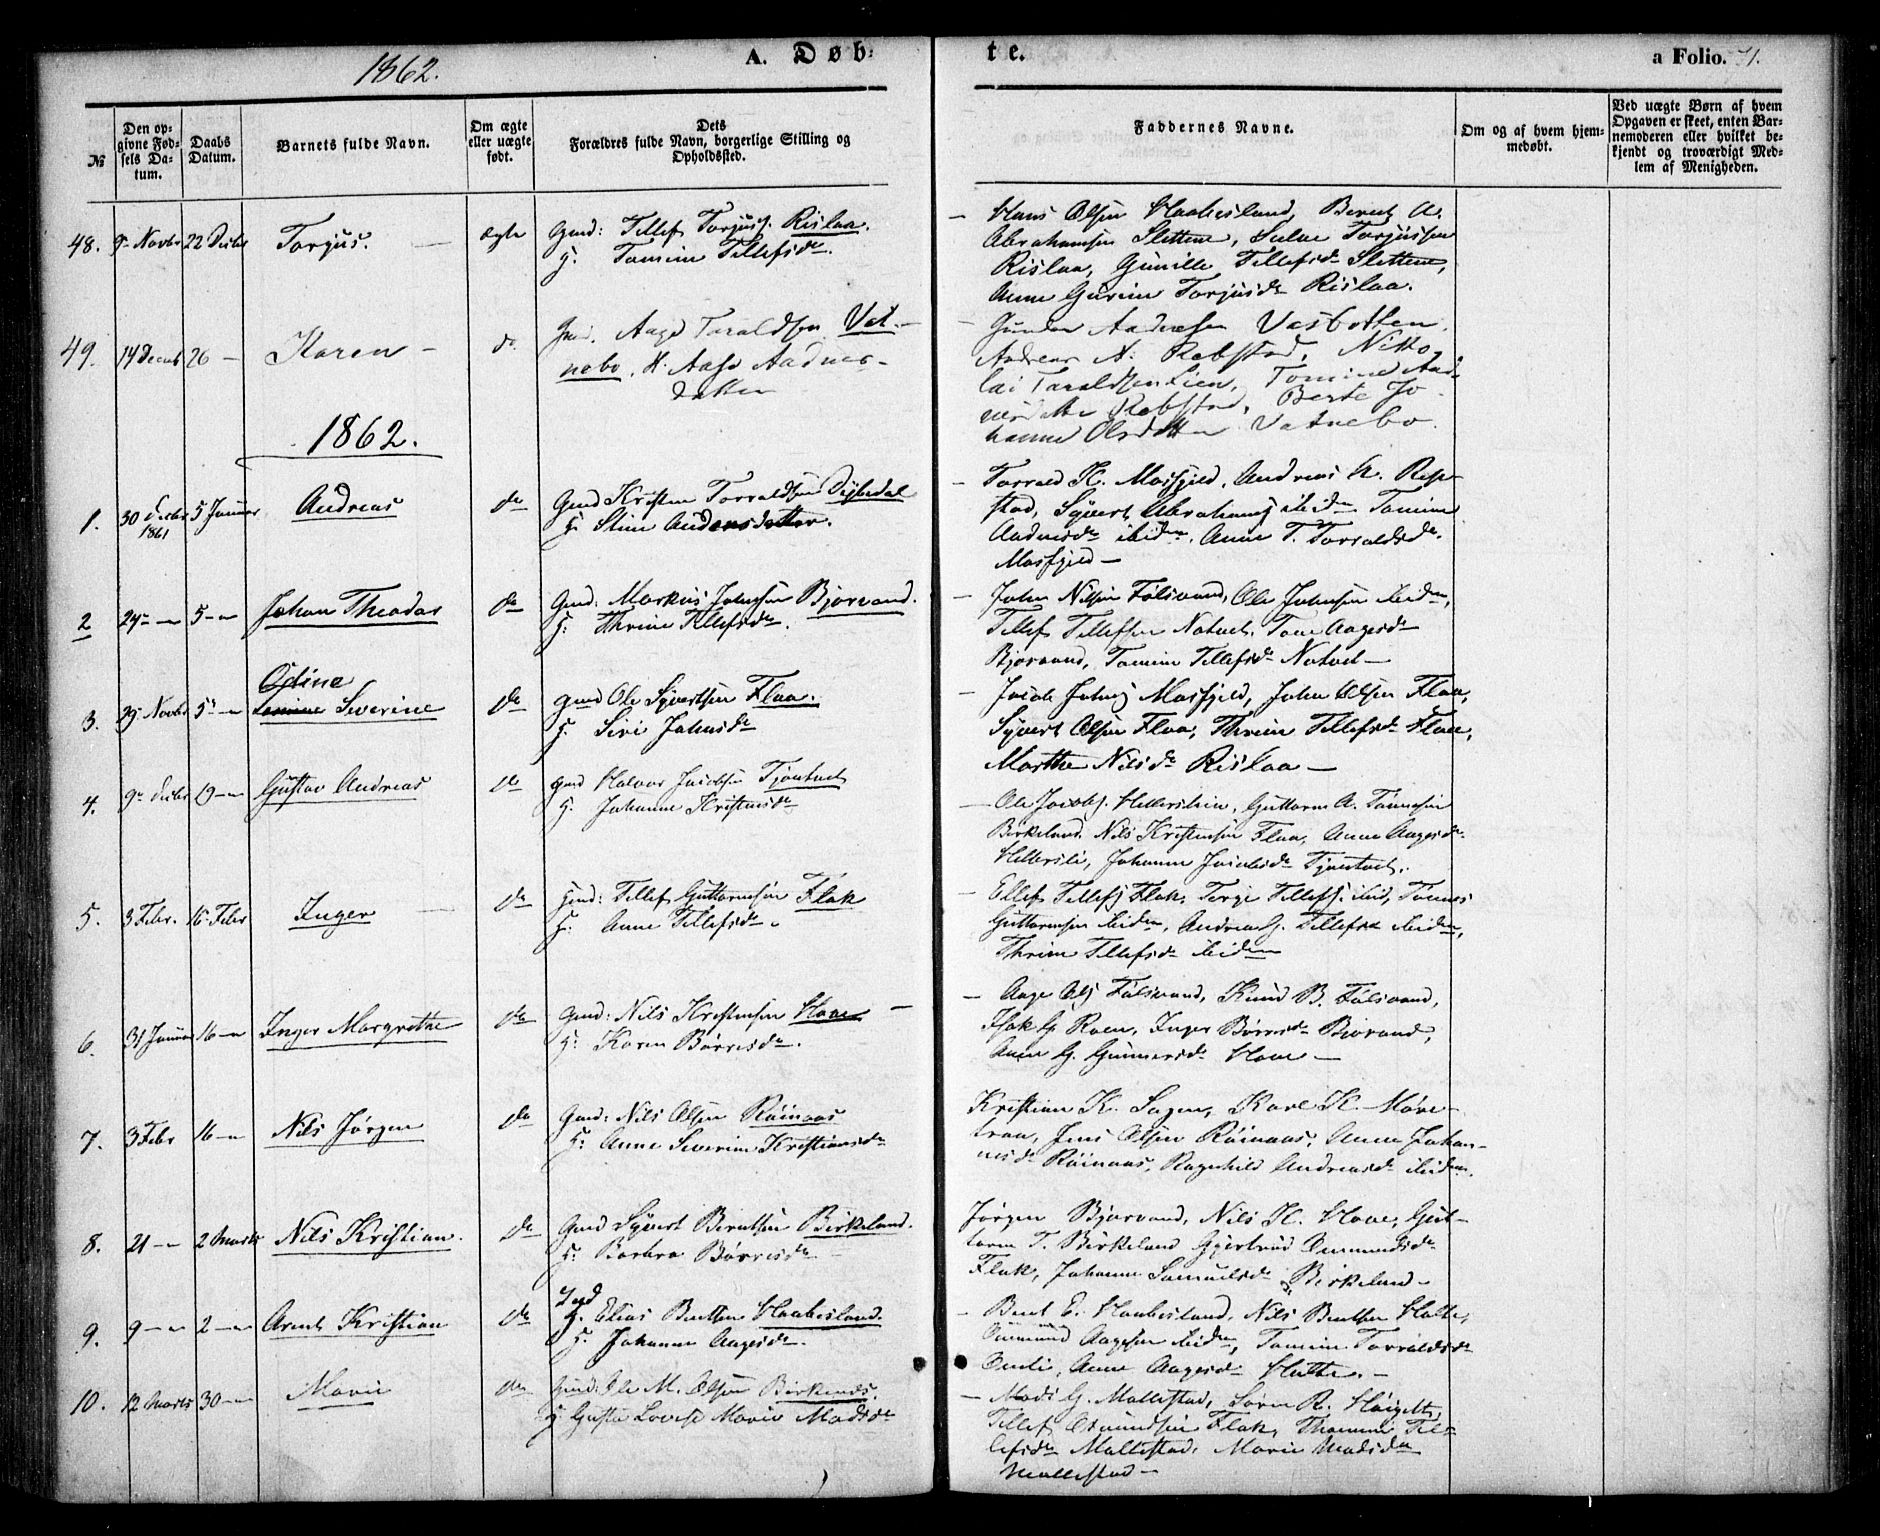 1862.
A. Døb-
te.
a Folio. 71.
No
Den opgivne Fødsels Datum.
Daabs Datum.
Barnets fulde Navn.
Om ægte eller uægte født.
Dets Forældres fulde Navn, borgerlige Stilling og Opholdssted.
Faddernes Navne.
Om og af hvem hjemmedøbt.
Ved uægte Børn af hvem Opgaven er skeet, enten Barnemoderen eller hvilket bekjendt og troværdigt Medlem af Menigheden.
48. 9 Novbr 22 Decbr Torjus. ægte Gmd: Tellef Torjuss. Rislaa.
H. Tomine Tellefsdr.
— Hans Olsen Haabesland, Berent A.
Abrahamsen Slettene, Torjussen
Rislaa, Gunille Tellefsdr Slettene,
Anne Gurine Torjusdr Rislaa.
49. 14 Decbr 26 — Karen — do. Aage Taraldsen Vat-
nebo. H. Aase Aadnes-
datter
— Gunder Aadnesen Vasbotten,
Andreas A. Rebstad, Niko-
lai Taraldsen Lien, Tomine Aad-
nesdatter Rebstad, Berte Jo-
hanne Olsdatter Vatnebo.
1862.
1. 30 Decbr 1861 5 Januar Andreas do Gmd Kristen Torvaldsen Digbedal
H. Stine Andersdatter.
— Torvald K. Mosfjeld, Andreas A. Rep-
stad, Syvert Abrahams ibidem Tomine
Aadnesdr ibidem, Anne T. Torvaldsdr
Mosfjeld —
2 29 — 5 — Johan Theodor do Gmd: Markus Johnsen Bjorvand.
H. Thrine Tellefsdr.
— John Nilsen Følsvand, Ole Johnsen ibidem,
Tellef Tellefsen Natvet, Tone Aagesdr
Bjorvand, Tomine Tellefsdr Natvet —
Odine
3. 29 Novbr 5 — Severine do gmd Ole Syvertsen Flaa.
H. Siri Johnsdr
— Jacob Johns Mosfjeld, John Olsen Flaa,
Syvert Olsen Flaa, Thrine Tellefsdr Flaa,
Marthe Nilsdr Rislaa —
4. 9 Decbr 19 — Gustav Andreas do gmd Halvor Jacobsen Tjøntvet
H. Johanne Kristensdr
— Ole Jacobs. Hellerslien, Guttorm A. Tønnesen
Birkeland, Nils Kristensen Flaa, Anne Aagesdr
Hellersli, Johanne Jacobsdr Tjøntvet.
5. 3 Febr. 16 Febr Inger do gmd: Tellef Guttormsen Flak
H. Anne Tellefsdr.
— Ellef Tellefs. Flak, Terje Tellefs. ibid, Tønnes
Guttormsen ibidem, Andrea G. Tellefsdr ibidem,
Thrine Tellefsdr ibidem
6. 31 Januar 16 — Inger Margrethe do Gmd: Nils Kristensen Hove —
H: Karen Børresdr.
— Aage Ols Følsvand, Knud B. Følsvand,
Isak G. Roen, Inger Børresdr Bjorvand,
Anne G. Gunnersdr Hove —
7. 3 Febr 16 — Nils Jørgen do Gmd: Nils Olsen Røinaas
H: Anne Severine Kristiansdr
Kristian K. Sagen, Karl K. Møre-
traa, Jens Olsen Røinaas, Anne Johan-
nesdr Røinaas, Ragnhild Andreasdr ibidem.
8. 21 — 2 Marts Nils Kristian. do Gmd Syvert Berntsen Birkeland.
H. Barbra Børresdr
Jørgen Bjorvand, Nils K. Hove, Gut-
torm T. Birkeland Gjertrud Ommundsdr
Flak, Johanne Samuelsdr Birkeland —
9. 9 — 2 — Arent Kristian do Elias Bentsen Haabesland.
H. Johanne Aagesdr.
— Bent E. Haabesland, Nils Bentsen Holte,
Ommund Aagesen ibidem, Tomine Torvaldsdr
Omli, Anne Aagesdr Hulte. —
10. 12 Marts 30 — Marie do Gmd: Ole M. Olsen Birkenes.
H. Gusta Lovise Marie Madsdr
— Mads G. Mollestad, Søren R. Høigilt,
Tellef Osmundsen Flak, Thomine Tel-
lefsdr Mollestad, Marie Madsdr
Mollestad —